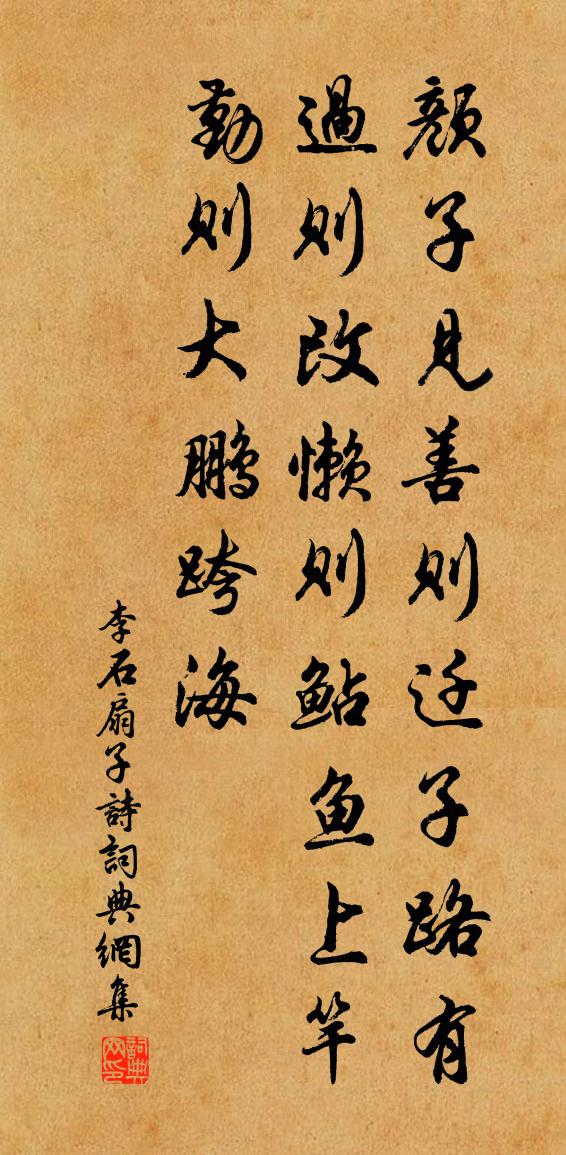 颜子見善则迁子路有
過则改懒则鲇鱼上竿
勤则大鹏跨海
李石扇子詩詞典網集
詞典网印